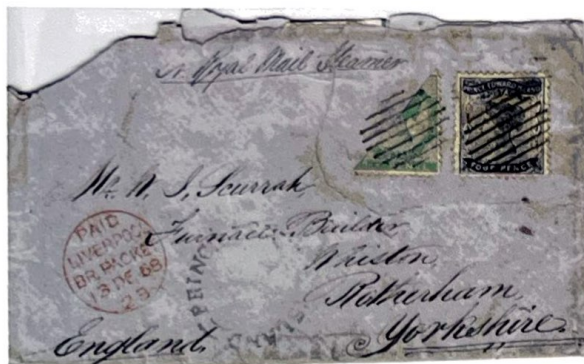 Royal Mail Steamer
PRINCE EDWARD ISLAND
POSTAGE
FOUR PENCE
Mr. W. S. Scurrah
Furnace Builder
Whiston
Rotherham
Yorkshire.
England
PAID
LIVERPOOL
BR. PACKET
13 DE 68